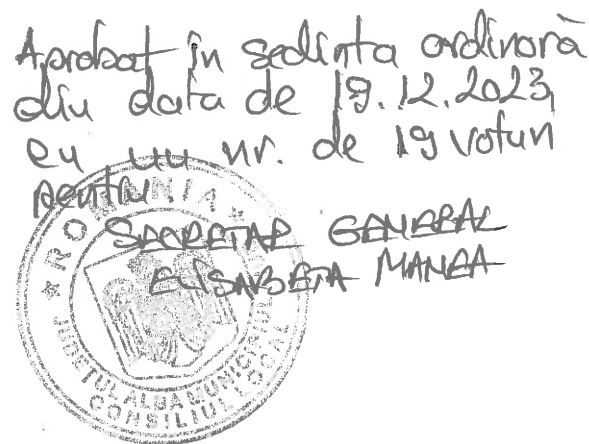 Aprobat în sedinta ordinară
din data de 19.12.2023,
cu un nr. de 19 voturi
pentru.
SECRETAR GENERAL
ELISABETA MANEA
* ROMÂNIA *
JUDEȚUL ALBA MUNICIPIUL
CONSILIUL LOCAL